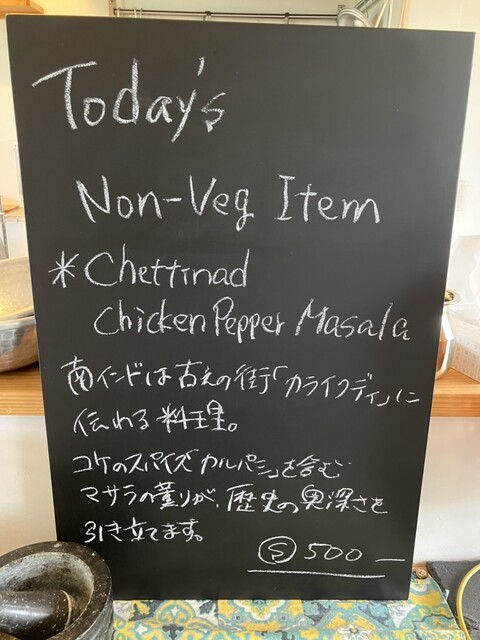 Today's
Non-Veg Item
*Chettinad
Chicken Pepper Masala
南インドは古えの街「カライクディ」に
伝わる料理。
コケのスパイス"カルパシ"を含む
マサラの薫りが、歴史の奥深さを
引き立てます。
Ⓢ 500 ―